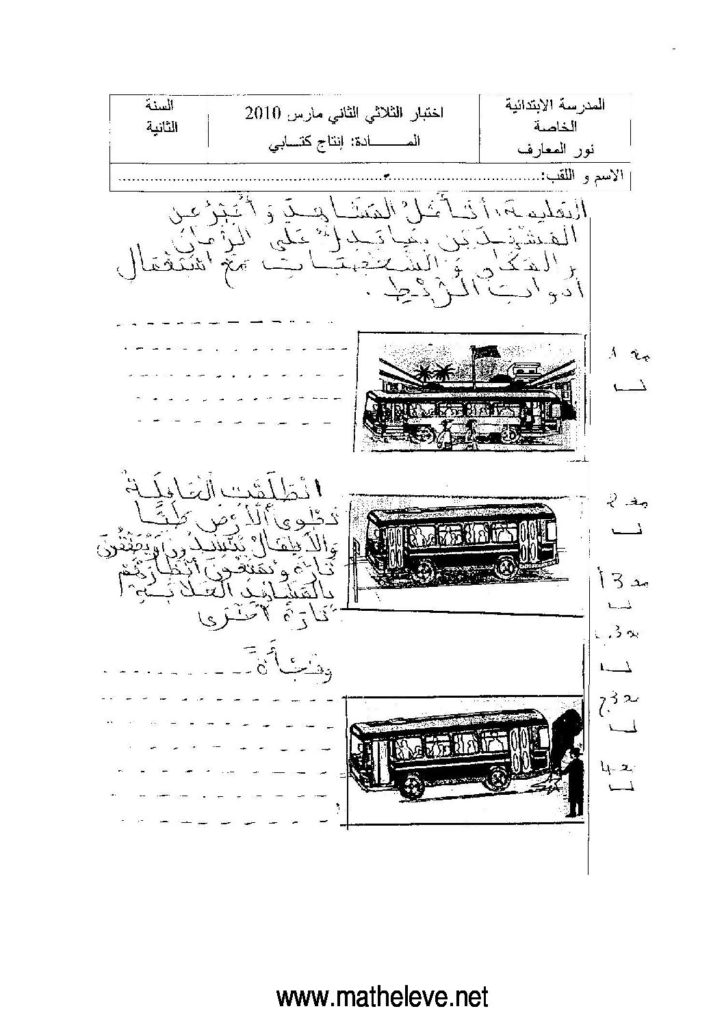 المدرسة الابتدائية
الخاصة
نور المعارف
اختبار الثلاثي الثاني مارس 2010
المـــادة: إنتاج كتـــابي
السنة
الثانية
الاسم و اللقب:
التعليمة: أتأمّلُ المَشَاهِدَ وَ أُعَبِّرُ عن
المَشْهَدَيْن بِمَا يَدلُّ عَلى الزّمَان
و المَكان وَ الشّخصيَّات مع اسْتعْمال
أدوات الرَّبْطِ.
مع 1
انْطَلَقَتِ الحَافِلَةُ
تَطْوي الأَرْضَ طَيًّا
وَالأَطفالُ يُنْشِدُون وَيُصَفِّقُونَ
تارَةً وَيُمَتِّعُونَ أنْظَارَهُم
بالمَشَاهِدِ الخَلاّبَةِ
تَارَةً أُخْرَى
مع 2
مع 3 أ
مع 3 ب
وفَجْأَةً
مع 3 ج
مع 4
www.matheleve.net